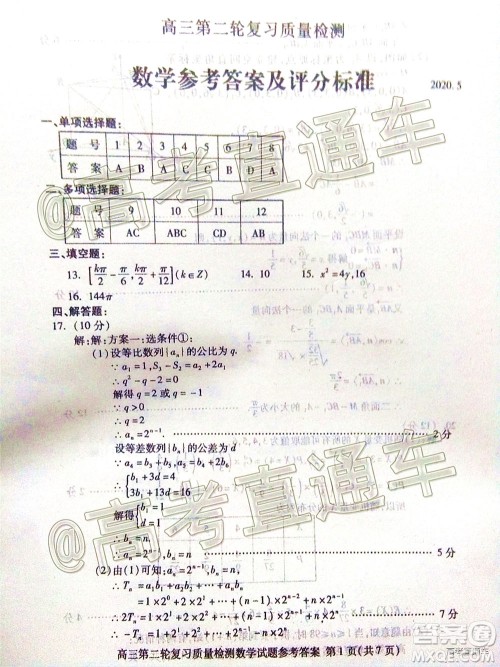 高三第二轮复习质量检测
数学参考答案及评分标准
2020.5
一、单项选择题:
题号 1 2 3 4 5 6 7 8
答案 A B A C C B D A
二、多项选择题:
题号 9 10 11 12
答案 AC ABC CD AB
三、填空题:
13. [kπ/2 - π/6, kπ/2 + π/12] (k∈Z) 14. 10 15. x²=4y, 16
16. 144π
四、解答题:
17. (10分)
解:解:方案一:选条件①:
(1)设等比数列{aₙ}的公比为q.
∵a₁=1, S₃-S₂=a₂+2a₁
∴q²-q-2=0
解得q=2或q=-1
∵q>0
∴q=2
∴aₙ=2ⁿ⁻¹. 2分
设等差数列{bₙ}的公差为d
∵a₄=b₃+b₅, a₅=b₄+2b₆
∴{2b₁+6d=8
3b₁+13d=16
解得{b₁=1
d=1
∴bₙ=n
∴aₙ=2ⁿ⁻¹, bₙ=n 5分
(2)由(1)可知: aₙ=2ⁿ⁻¹, bₙ=n
∴Tₙ=a₁b₁+a₂b₂+…+aₙbₙ
=1×2⁰+2×2¹+…+(n-1)×2ⁿ⁻²+n×2ⁿ⁻¹
∴2Tₙ=1×2¹+2×2²+…+(n-1)×2ⁿ⁻¹+n×2ⁿ 7分
∴-Tₙ=1+2¹+2²+…+2ⁿ⁻¹-n×2ⁿ
高三第二轮复习质量检测数学试题参考答案 第1页(共7页)
@高考直通车
@高考直通车